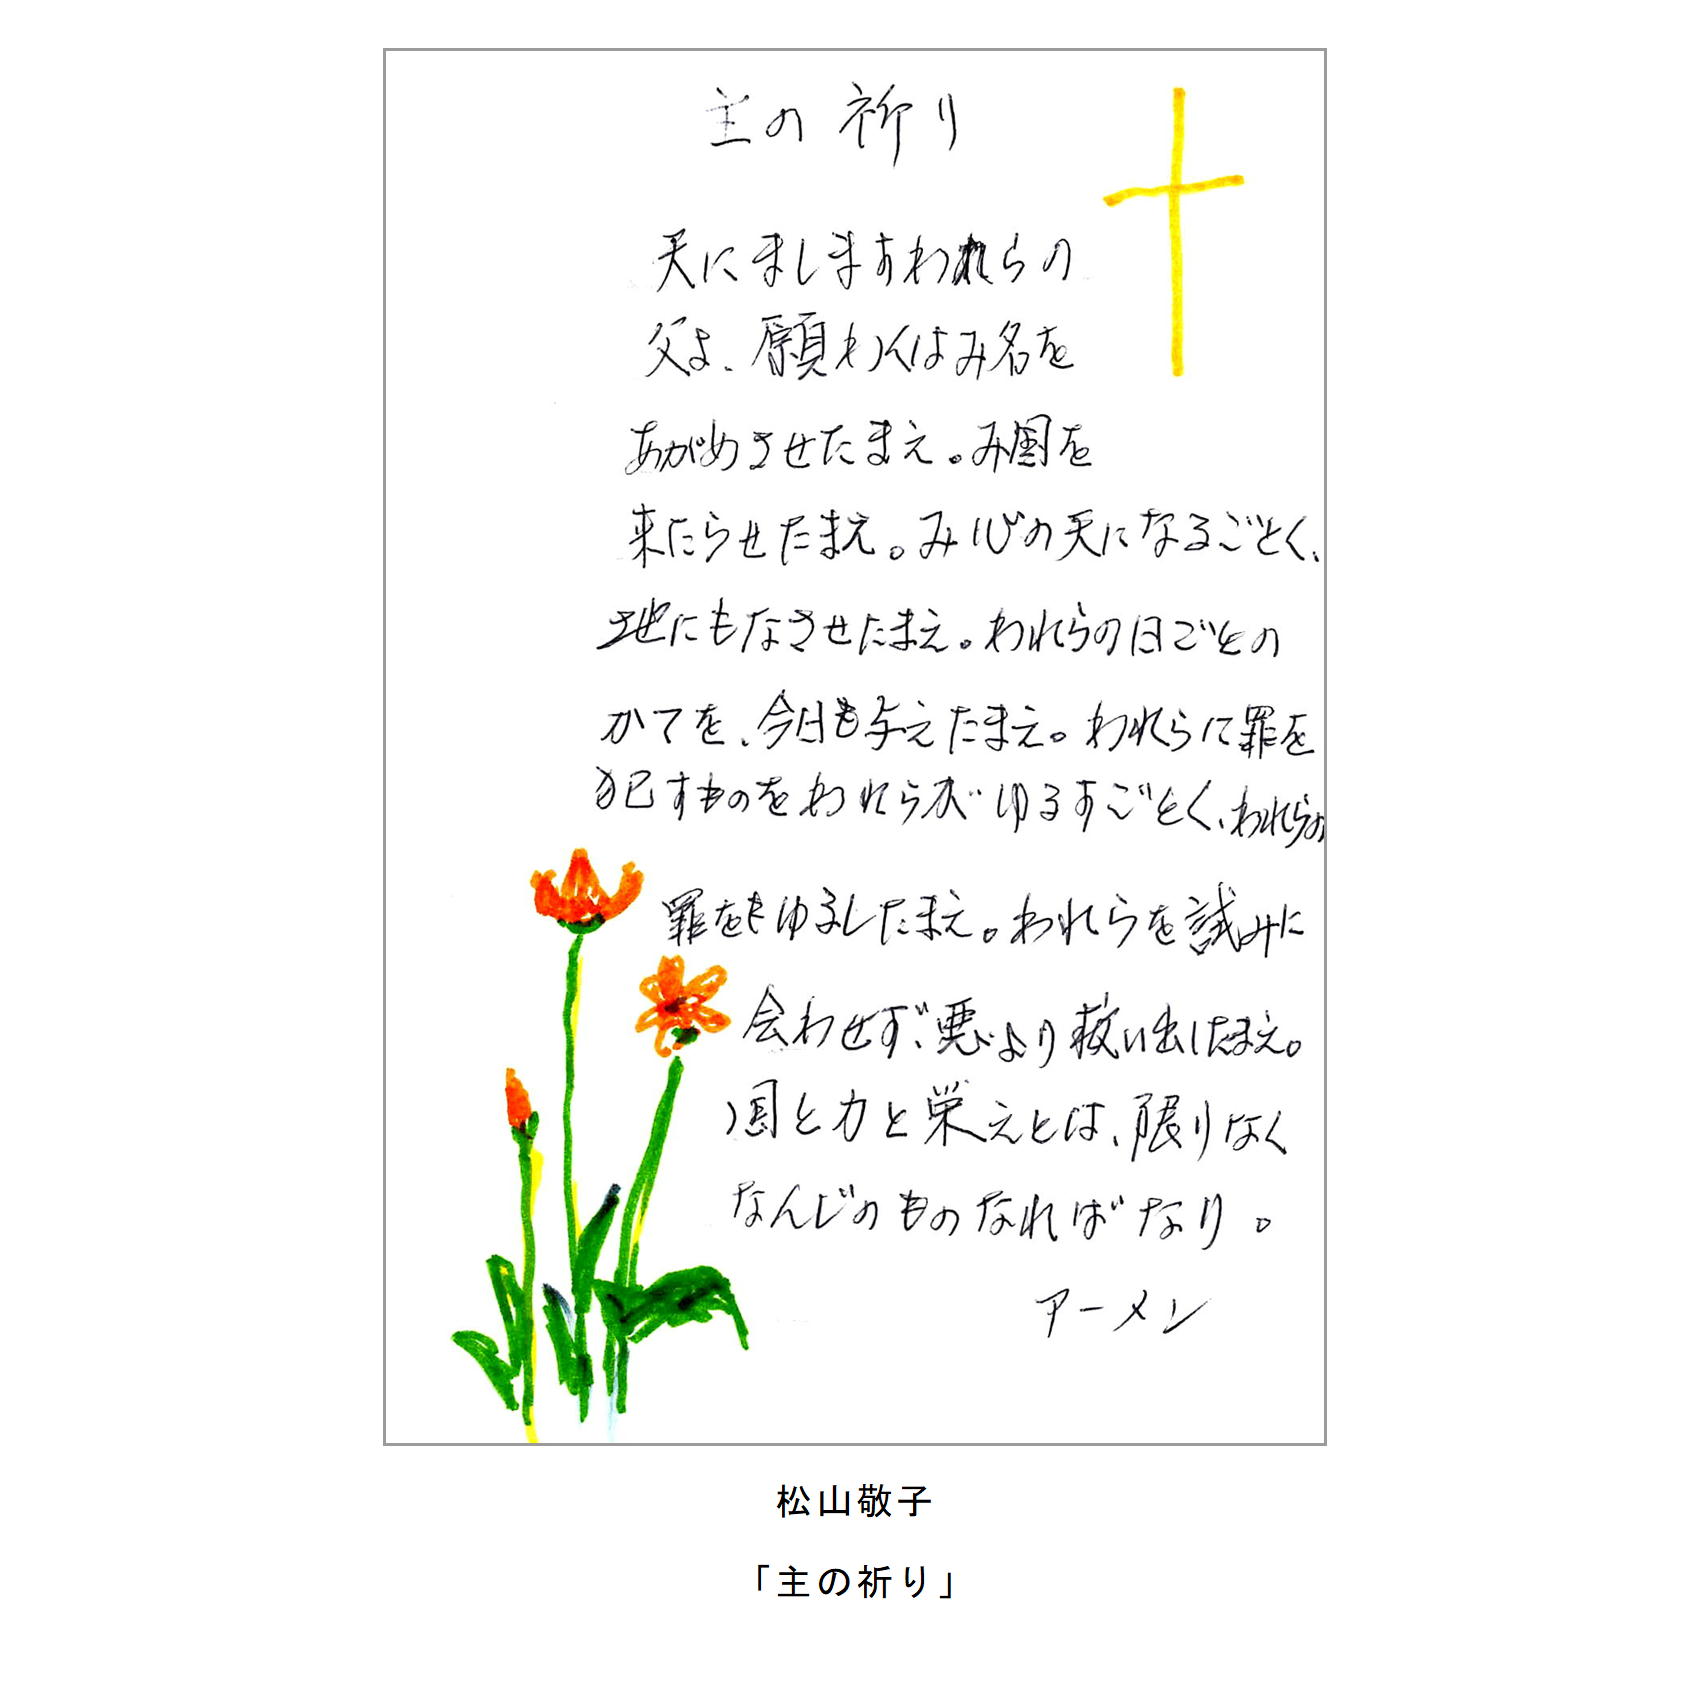 主の祈り
天にましますわれらの
父よ、願わくはみ名を
あがめさせたまえ。み国を
来たらせたまえ。み心の天になるごとく、
地にもなさせたまえ。われらの日ごとの
かてを、今日も与えたまえ。われらに罪を
犯すものをわれらがゆるすごとく、われらの
罪をもゆるしたまえ。われらを試みに
会わせず、悪より救い出したまえ。
国と力と栄えとは、限りなく
なんじのものなればなり。
アーメン
松山敬子
「主の祈り」